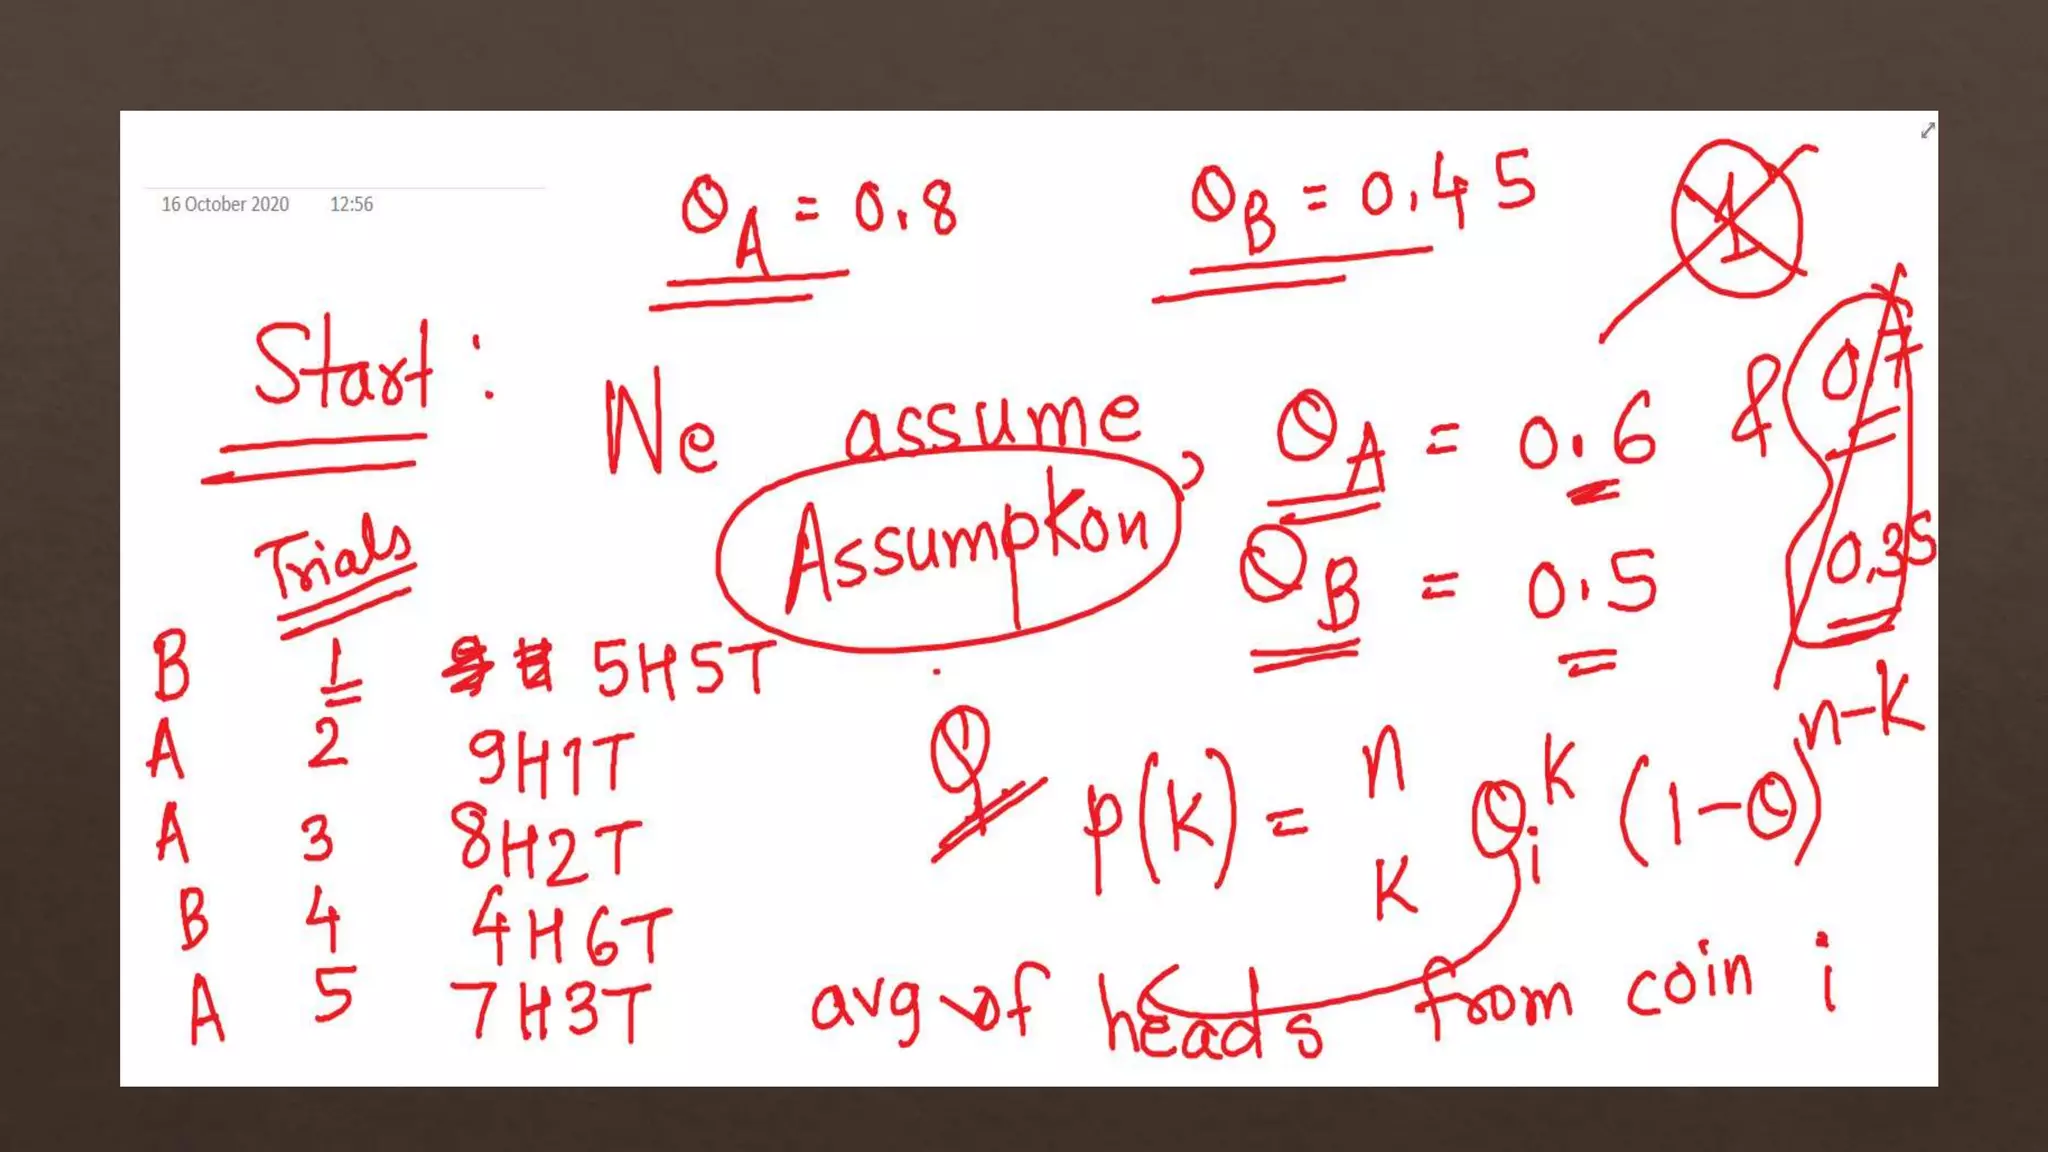 16 October 2020 12:56
θA = 0.8 θB = 0.45
1
Start : We assume, θA = 0.6 & 0.7
Assumption θB = 0.5 0.35
Trials
B 1 5H5T
A 2 9H1T
A 3 8H2T
B 4 4H6T
A 5 7H3T
P(k) = n k θi^k (1-θ)^n-k
avg of heads from coin i